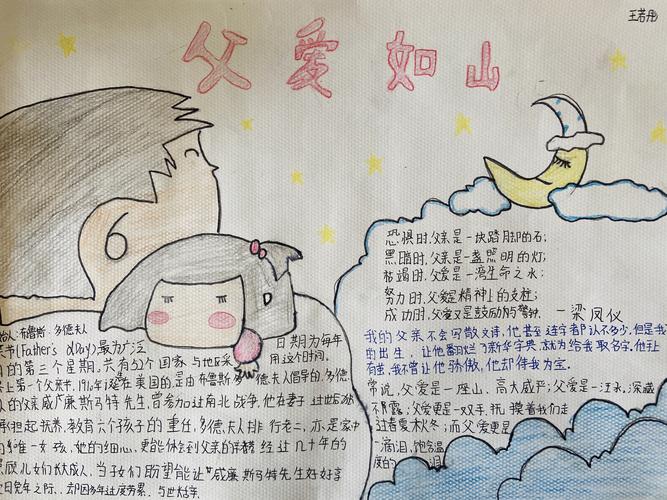 王若彤
父爱如山
恐惧时,父亲是一块踏脚的石;
黑暗时,父亲是一盏照明的灯;
枯竭时,父爱是一湾生命之水;
努力时,父爱是精神上的支柱;
成功时,父爱又是鼓励与警钟。 一梁凤仪
我的父亲不会写散文诗,他甚至连字都认不多少,但是我
的出生,让他翻烂了新华字典,就为给我取名字,他让
有苦,我不曾让他骄傲,他却待我为宝。
常说,父爱是一座山、高大威严;父爱是一汪水,深藏
不露;父爱更是一双手,抚摸着我们走
过春夏秋冬;而父爱更是
一滴泪,饱含温
度的 泪
始人:布鲁斯·多德夫人
节(Father's Day)最为广泛 日期为每年
的第三个星期,共有52个国家与地区采 用这个时间。
上第一个父亲节,1910年诞生在美国的是由布鲁斯多德夫人倡导的,多德
的父亲威廉斯马特先生,曾参加过南北战争,他在妻子过世以
承担起抚养、教育六个孩子的重任,多德夫人排行老二,亦是家中
唯一女孩,她的细心,更能体会到父亲的辛
儿女们长大成人,当子女们盼望能让 威廉斯马特先生好好享
晚年之际,却因多年过度劳累、与世长辞